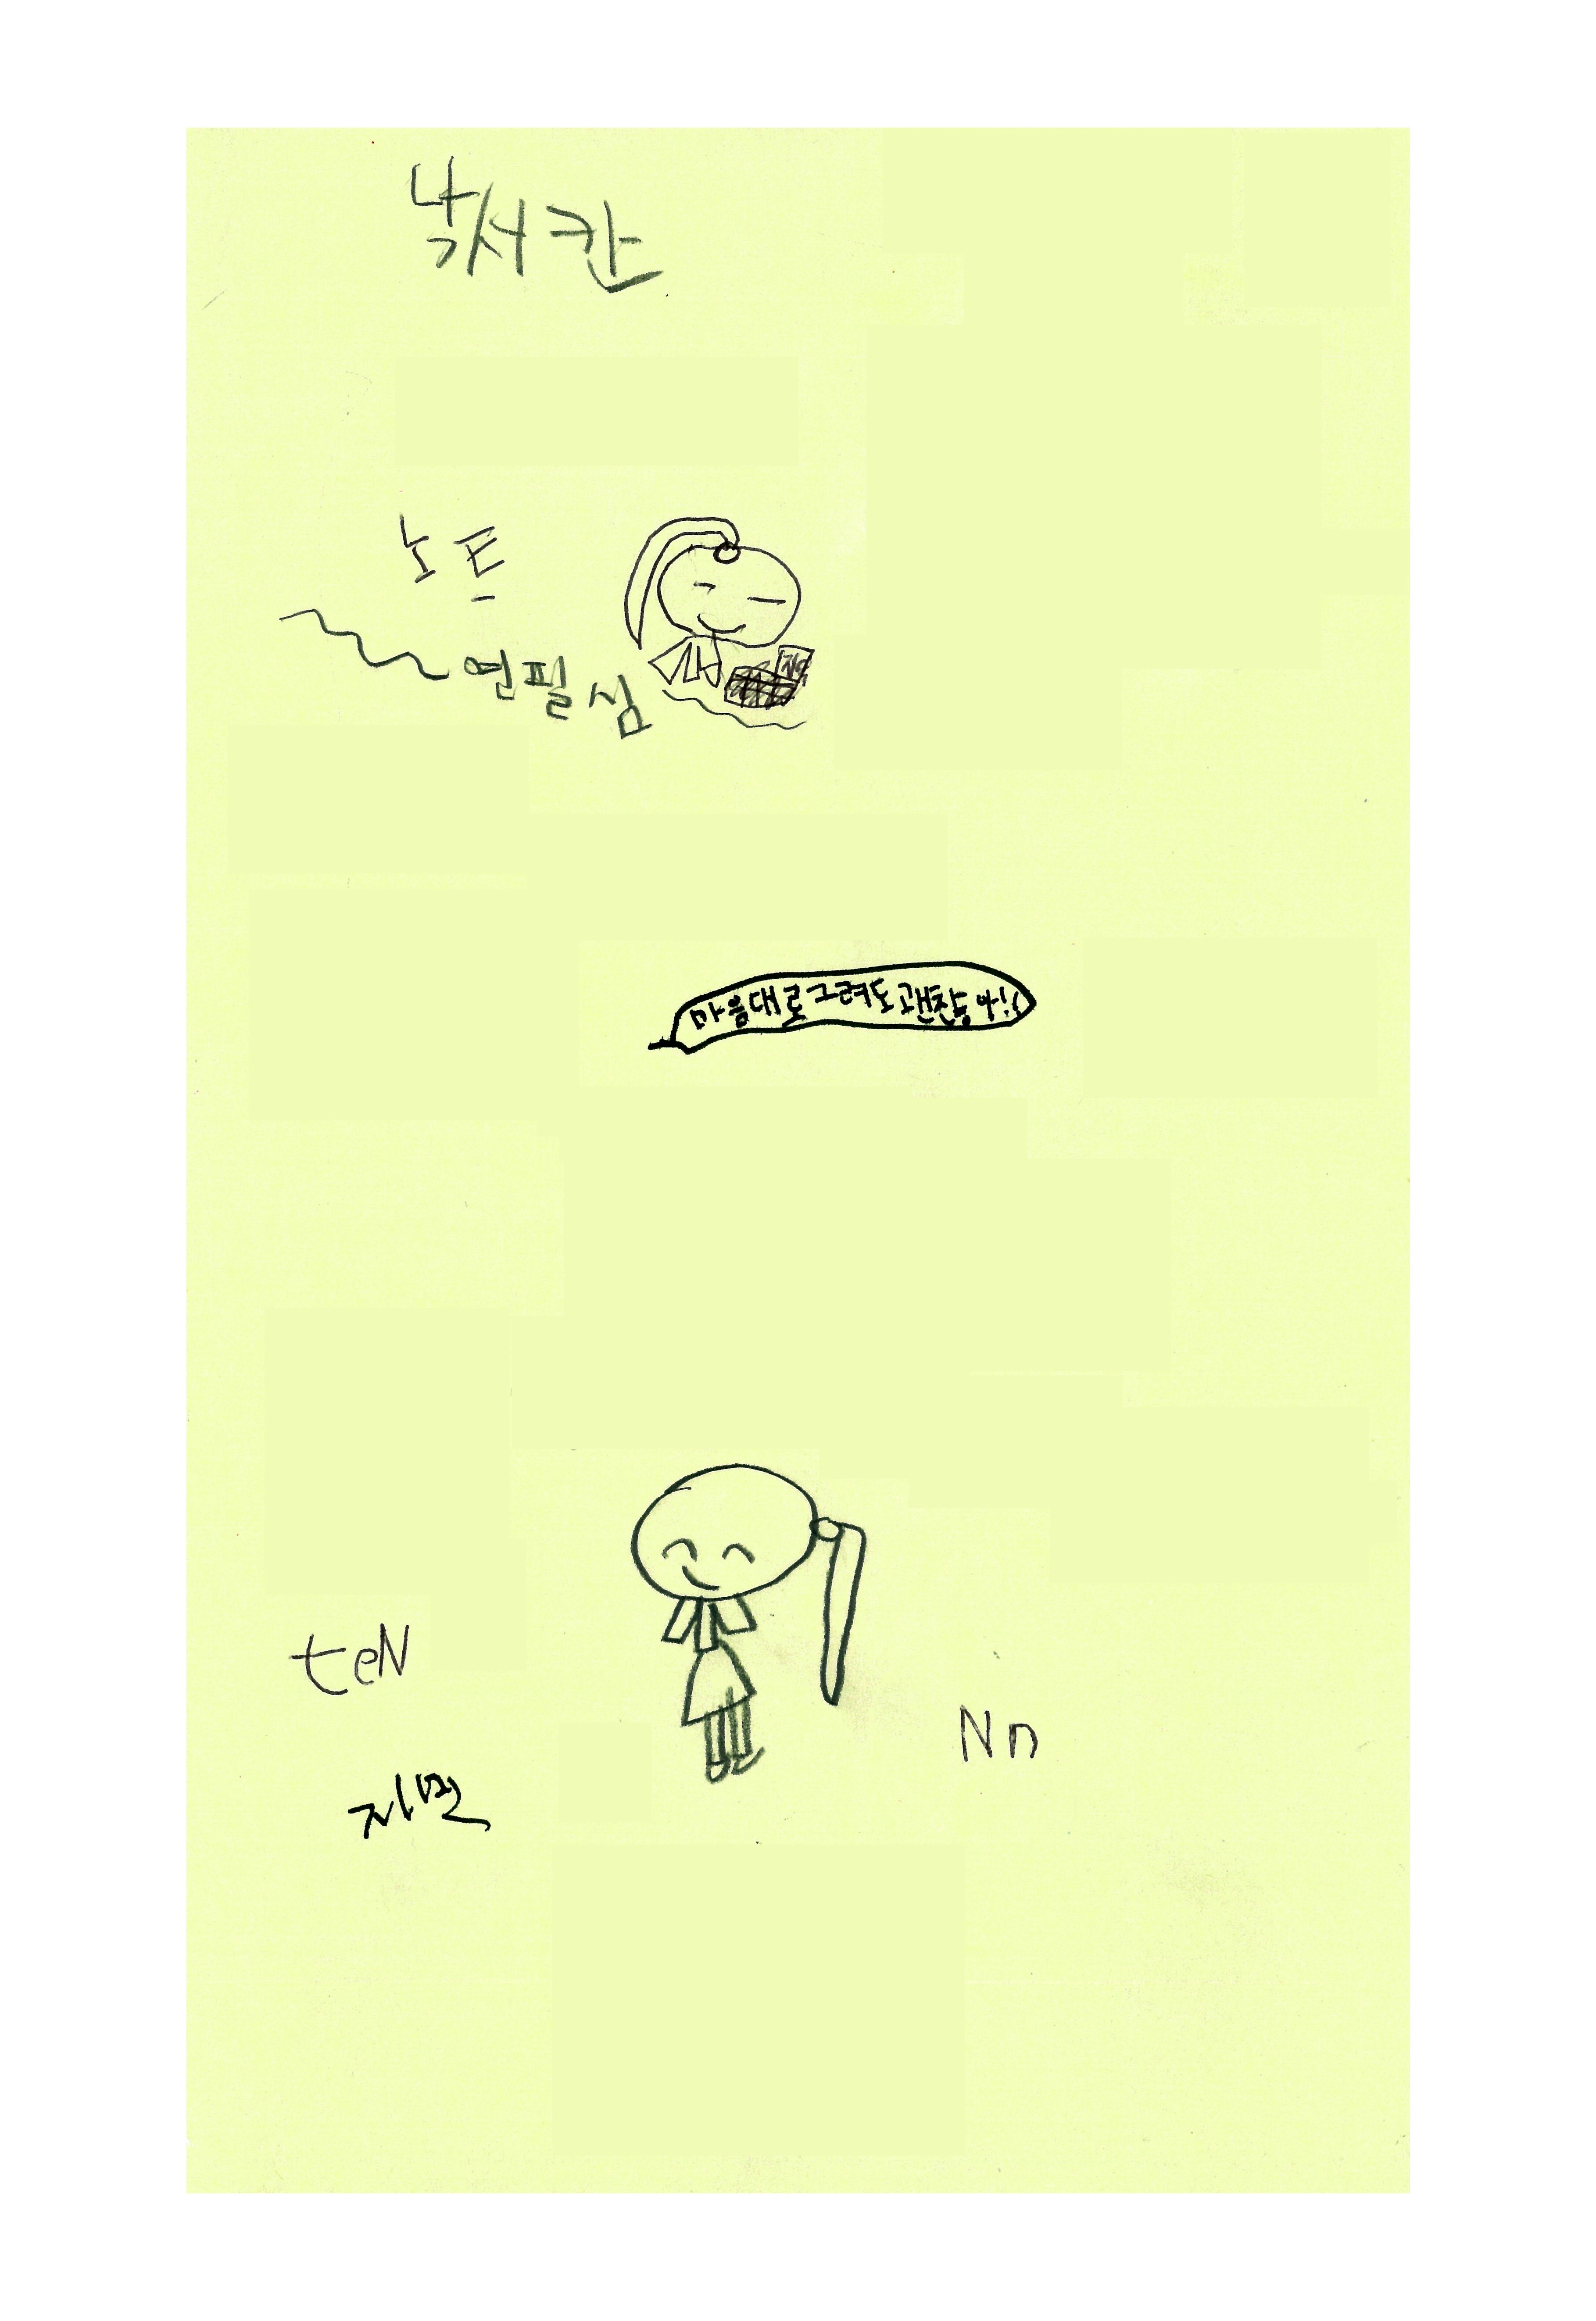 낙서칸
노트
연필심
마음대로그려도괜찮아!!
teN
Nn
자몇